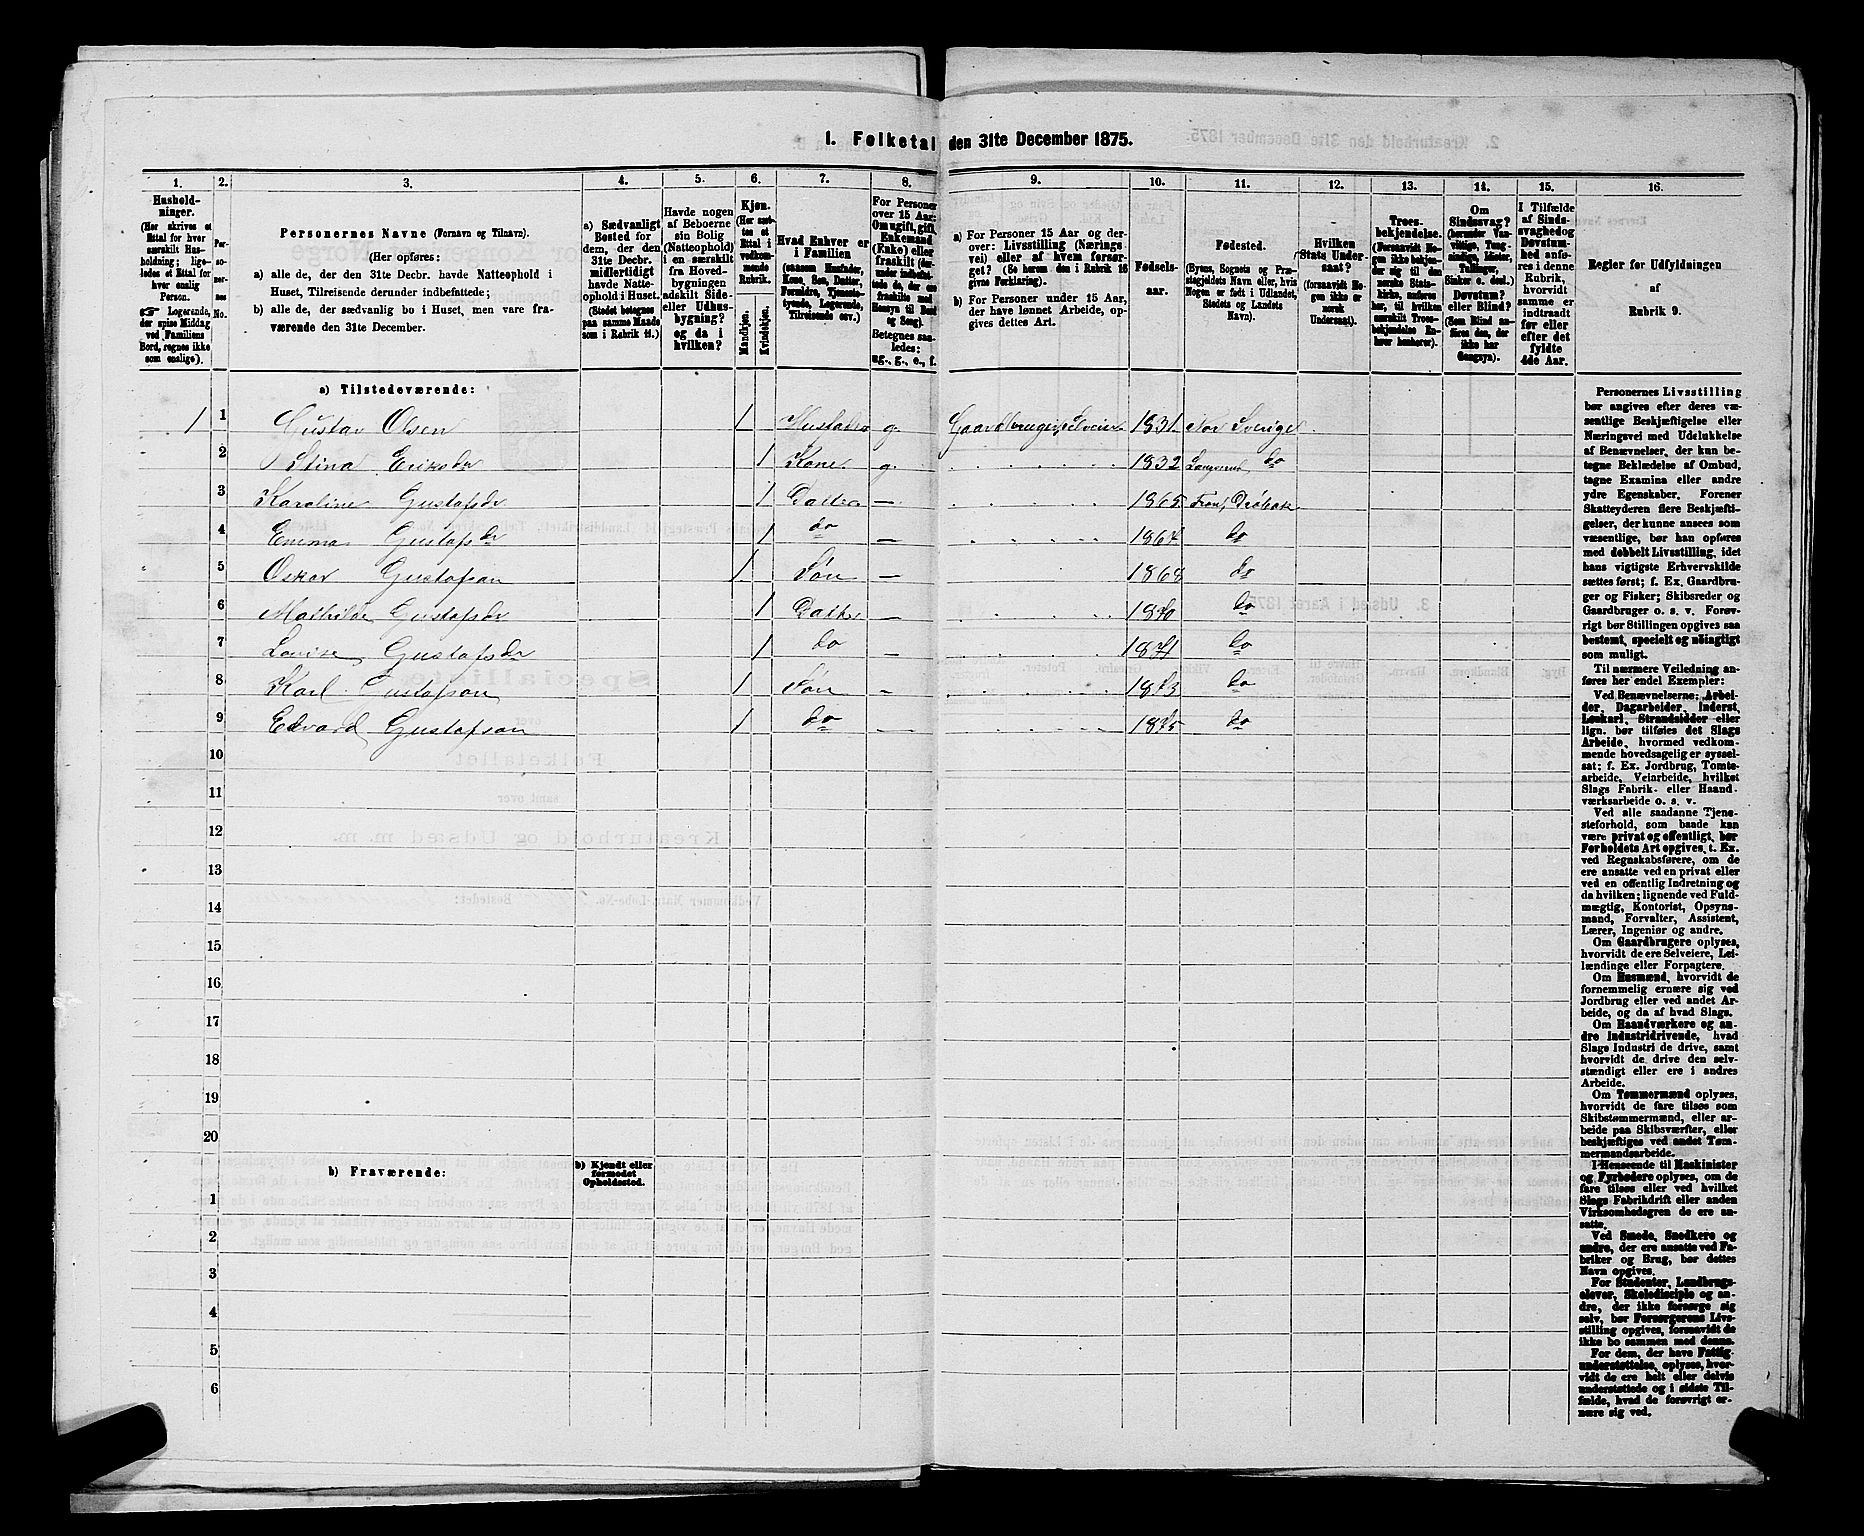 1. Folketal den 31te December 1875.
1. 2. 3. 4. 5. 6. 7. 8. 9. 10. 11. 12. 13. 14. 15. 16.
Husholdninger.
(Her skrives et Ettal for hver særskilt Husholdning; ligeledes et Ettal for hver enlig Person.
Logerende, der spise Middag ved Familiens Bord, regnes ikke som enlige).
Personernes No.
Personernes Navne (Fornavn og Tilnavn).
(Her opføres:
a) alle de, der den 31te Decbr. havde Natteophold i Huset, Tilreisende derunder indbefattede;
b) alle de, der sædvanlig bo i Huset, men vare fraværende den 31te December.
a) Sædvanligt Bosted for dem, der den 31te Decbr. midlertidigt havde Natteophold i Huset.
(Stedet betegnes paa samme Maade som i Rubrik 11.)
Havde nogen af Beboerne sin Bolig (Natteophold) i en særskilt fra Hovedbygningen adskilt Side- eller Udhusbygning? og da i hvilken?
Kjøn.
(Her sættes et Ettal i vedkommende Rubrik.
Mandkjøn. Kvindekjøn.
Hvad Enhver er i Familien
(saasom Husfader, Kone, Søn, Datter, Forældre, Tjenestetyende, Logerende, Tilreisende osv.)
For Personer over 15 Aar: Om ugift, gift, Enkemand (Enke) eller fraskilt
Betegnes saaledes: ug., g., e., f.
a) For Personer over 15 Aar og derover: Livsstilling (Næringsvei) eller af hvem forsørget? (Se herom den i Rubrik 16 givne Forklaring).
b) For Personer under 15 Aar, der have lønnet Arbeide, opgives dettes Art.
Fødselsaar.
Fødested.
(Byens, Sognets og Præstegjeldets Navn eller, hvis Nogen er født i Udlandet, Stedets og Landets Navn).
Hvilken Stats Undersaat?
(forsaavidt Nogen ikke er norsk Undersaat).
Troesbekjendelse.
(Forsaavidt Nogen ikke bekjender sig til den norske Statskirke, anføres her, til hvilken særskilt Troesbekjendelse Enhver henhører).
Om Sindssvag?
Døvstum? eller Blind?
(Som Blind anføres den, der ikke har Gangsyn).
I Tilfælde af Sindssvaghed og Døvstumhed anføres i denne Rubrik, hvorvidt samme er indtraadt før eller efter det fyldte 4de Aar.
Regler for Udfyldningen af Rubrik 9.
a) Tilstedeværende:
1 1 Gustav Olsen 1 Husfader g. Gaardbruger, Selveier 1831 Nor Sverige
2 Stina Eriksdr 1 Kone g. 1832 do
3 Karoline Gustafsdr 1 Datter — 1865 Drøbak
4 Emma Gustafsdr 1 do — 1867 do
5 Oskar Gustafsøn 1 Søn — 1868 do
6 Mathilde Gustafsdr 1 Datter — 1870 do
7 Lovise Gustafsdr 1 do — 1871 do
8 Karl Gustafson 1 Søn - 1873 do
9 Edvard Gustafson 1 do — 1875 do
10
11
12
13
14
15
16
17
18
19
20
b) Fraværende: b) Kjendt eller formodet Opholdssted.
1
2
3
4
5
6
Personernes Livsstilling bør angives efter deres væsentlige Beskjæftigelse eller Næringsvei med Udelukkelse af Benævnelser, der kun betegne Beklædelse af Ombud, tagne Examina eller andre ydre Egenskaber. Forener Skatteyderen flere Beskjæftigelser, der kunne ansees som væsentlige, bør han opføres med dobbelt Livsstilling, idet hans vigtigste Erhvervskilde sættes først; f. Ex. Gaardbruger og Fisker; Skibsreder og Gaardbruger o. s. v. Forøvrigt bør Stillingen opgives saa bestemt, specielt og nøiagtigt som muligt.
Til nærmere Veiledning anføres her endel Exempler:
Ved Benævnelserne: Arbeider, Dagarbeider, Inderst, Løskarl, Strandsidder eller lign. bør tilføies det Slags Arbeide, hvormed vedkommende hovedsagelig er sysselsat; f. Ex. Jordbrug, Tomtearbeide, Veiarbeide, hvilket Slags Fabrik- eller Haandværksarbeide o. s. v.
Ved alle saadanne Tjenesteforhold, som baade kan være privat og offentligt, bør Forholdets Art opgives, t. Ex. ved Regnskabsførere, om de ere ansatte ved en privat eller ved en offentlig Indretning og da hvilken; lignende ved Fuldmægtig, Kontorist, Opsynsmand, Forvalter, Assistent, Lærer, Ingeniør og andre.
Om Gaardbrugere oplyses, hvorvidt de ere Selveiere, Leilændinge eller Forpagtere.
Om Husmænd, hvorvidt de fornemmelig ernære sig ved Jordbrug eller ved andet Arbeide, og da af hvad Slags.
Om Haandværkere og andre Industridrivende, hvad Slags Industri de drive, samt hvorvidt de drive den selvstændigt eller ere i andres Arbeide.
Om Tømmermænd oplyses, hvorvidt de fare tilsøs som Skibstømmermænd, eller arbeide paa Skibsværfter, eller beskjæftiges ved andet Tømmermandsarbeide.
I Henseende til Maskinister og Fyrbødere oplyses, om de fare tilsøs eller ved hvilket Slags Fabrikdrift eller anden Virksomhedsgren de ere ansatte.
Ved Smede, Snedkere og andre, der ere ansatte ved Fabriker og Brug, bør dettes Navn opgives.
For Studenter, Landbrugselever, Skoledisciple og andre, der ikke forsørge sig selv, bør Forsørgerens Livsstilling opgives, forsaavidt de ikke bo sammen med denne.
For dem, der have Fattigunderstøttelse, oplyses, hvorvidt de ere helt eller delvis understøttede og i sidste Tilfælde, hvad de forøvrigt ernære sig ved.